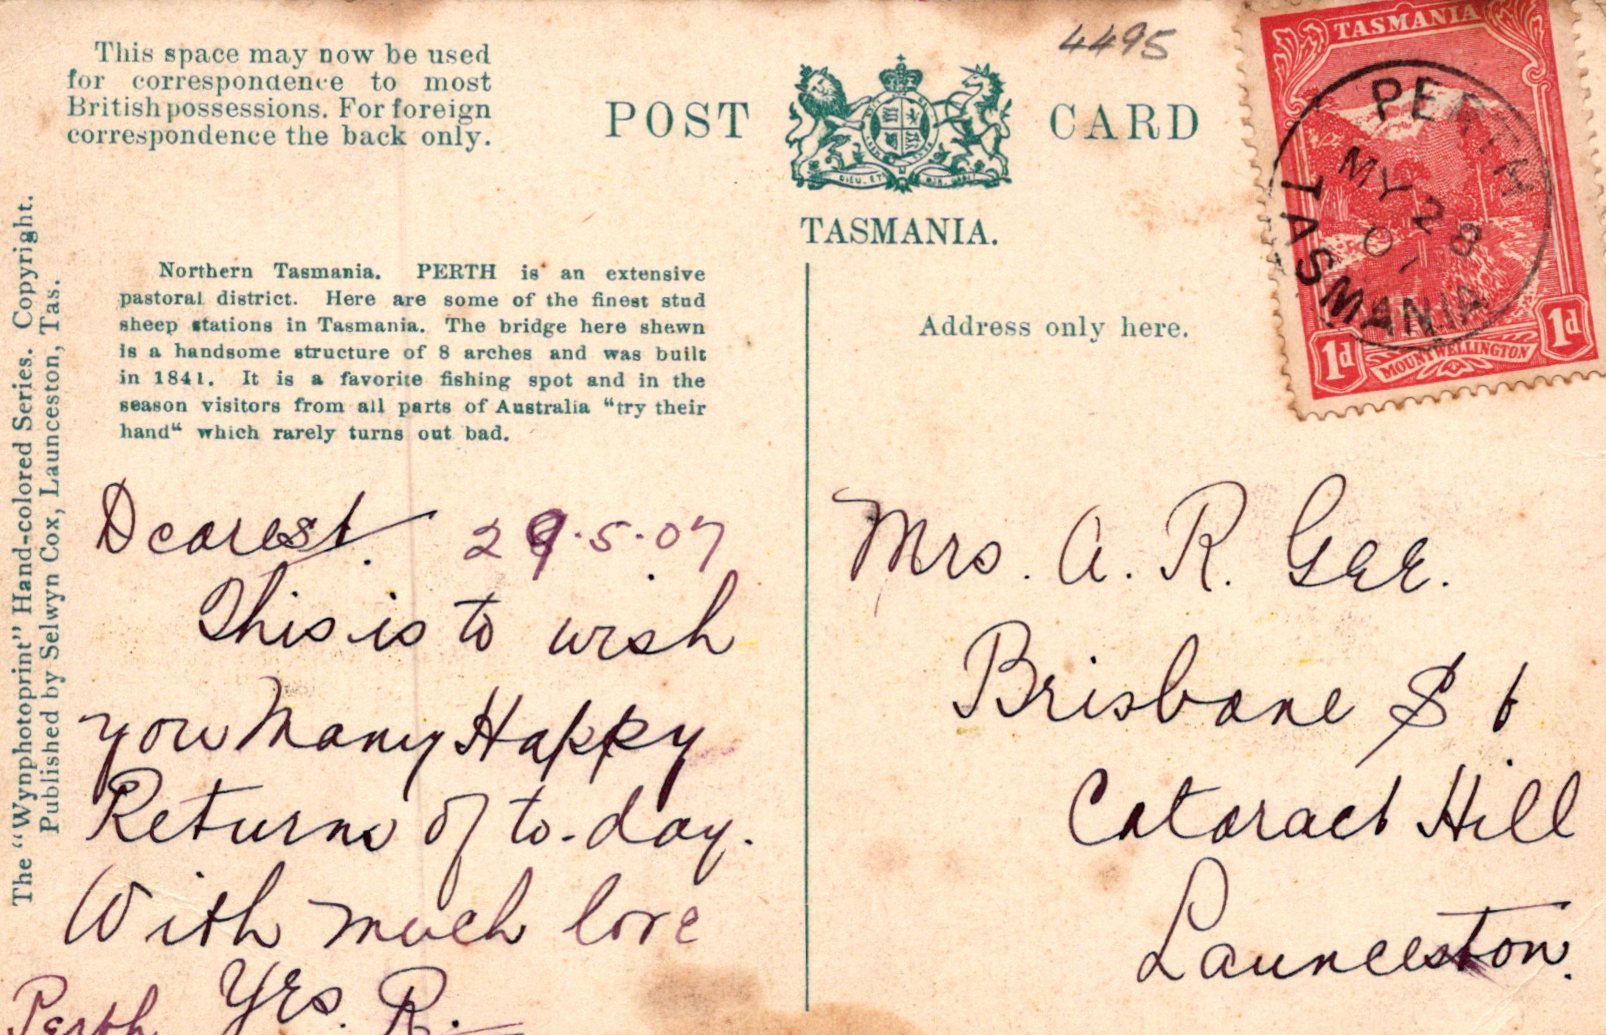 This space may now be used
for correspondence to most
British possessions. For foreign
correspondence the back only.
POST CARD
4495
DIEU ET MON DROIT
TASMANIA.
TASMANIA
PERTH
MY 28
07
TASMANIA
1d 1d
MOUNT WELLINGTON
The "Wynphotoprint" Hand-colored Series. Copyright.
Published by Selwyn Cox, Launceston, Tas.
Northern Tasmania. PERTH is an extensive
pastoral district. Here are some of the finest stud
sheep stations in Tasmania. The bridge here shewn
is a handsome structure of 8 arches and was built
in 1841. It is a favorite fishing spot and in the
season visitors from all parts of Australia "try their
hand" which rarely turns out bad.
Address only here.
Dearest. 29.5.07
This is to wish
you Many Happy
Returns of to-day.
With much love
Yrs. R.
Perth
Mrs. A. R. Gee.
Brisbane St
Cataract Hill
Launceston.